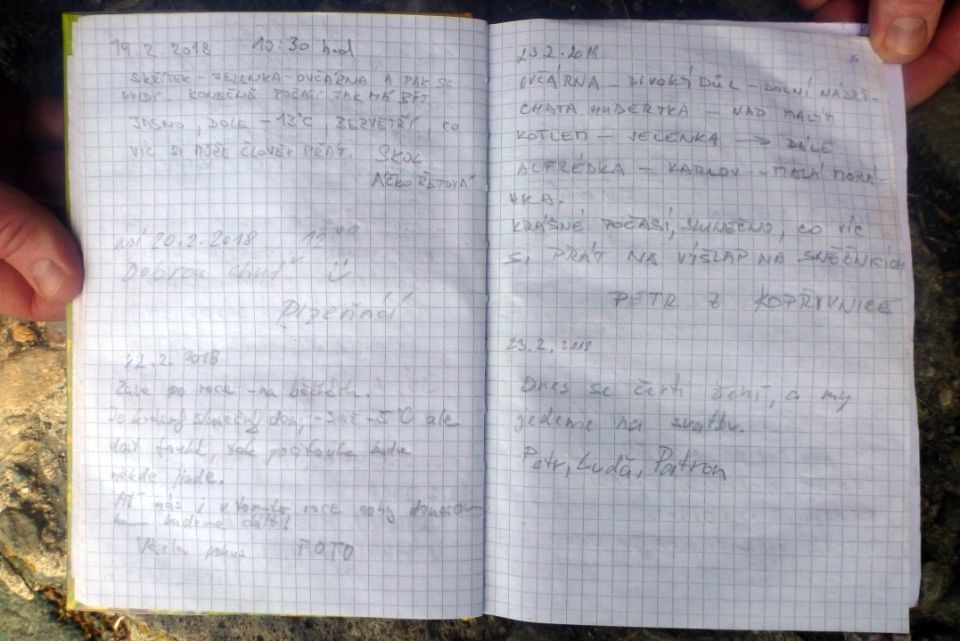 19.2.2018 10:30 hod
SKŘÍTEK - JELENKA - OVČÁRNA A PAK SE
UVIDÍ. KONEČNĚ POČASÍ JAK MÁ BÝT.
JASNO, DOLE -13°C, BEZVĚTŘÍ, CO
VÍC SI MŮŽE ČLOVĚK PŘÁT. SKOL
20.2.2018
Dobrou chuť
Plzeňáci
2.2.2018
Zase po roce - na běžkách.
slunečný den, -5°C ale
tak bude
někde jinde.
Ať nás i v tomto roce nohy
budeme chtít!
FOTO
23.2.2018
OVČÁRNA - DIVOKÝ DŮL - DOLNÍ NÁDRŽ -
CHATA HUBERTKA - NAD MALÝM
KOTLEM - JELENKA → DÁLE
ALFRÉDKA - KARLOV - MALÁ MORÁ-
VKA.
KRÁSNÉ POČASÍ, SLUNEČNO, CO VÍC
SI PŘÁT NA VÝŠLAP NA SNĚŽNICÍCH
PETR Z KOPŘIVNICE
23.2.2018
Dnes se čerti žení, a my
jedeme na svatbu.
Petr, Luďa, Patron